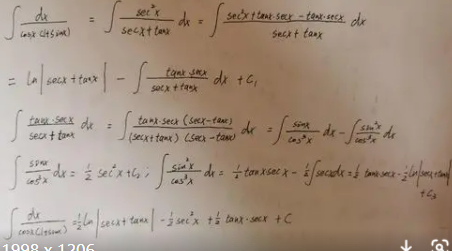 ∫ dx / cosx(1+sinx) = ∫ sec²x / secx+tanx dx = ∫ sec²x+tanx·secx − tanx·secx / secx+tanx dx
= ln|secx+tanx| − ∫ tanx·secx / secx+tanx dx + C₁
∫ tanx·secx / secx+tanx dx = ∫ tanx·secx (secx−tanx) / (secx+tanx) (secx−tanx) dx = ∫ sinx / cos³x dx − ∫ sin²x / cos³x dx
∫ sinx / cos³x dx = ½ sec²x + C₂ ; ∫ sin²x / cos³x dx = ½ tanx secx − ½ ∫ secx dx = ½ tanx·secx − ½ ln|secx+tanx| + C₃
∫ dx / cosx(1+sinx) = ½ ln|secx+tanx| − ½ sec²x + ½ tanx·secx + C
1998 x 1206